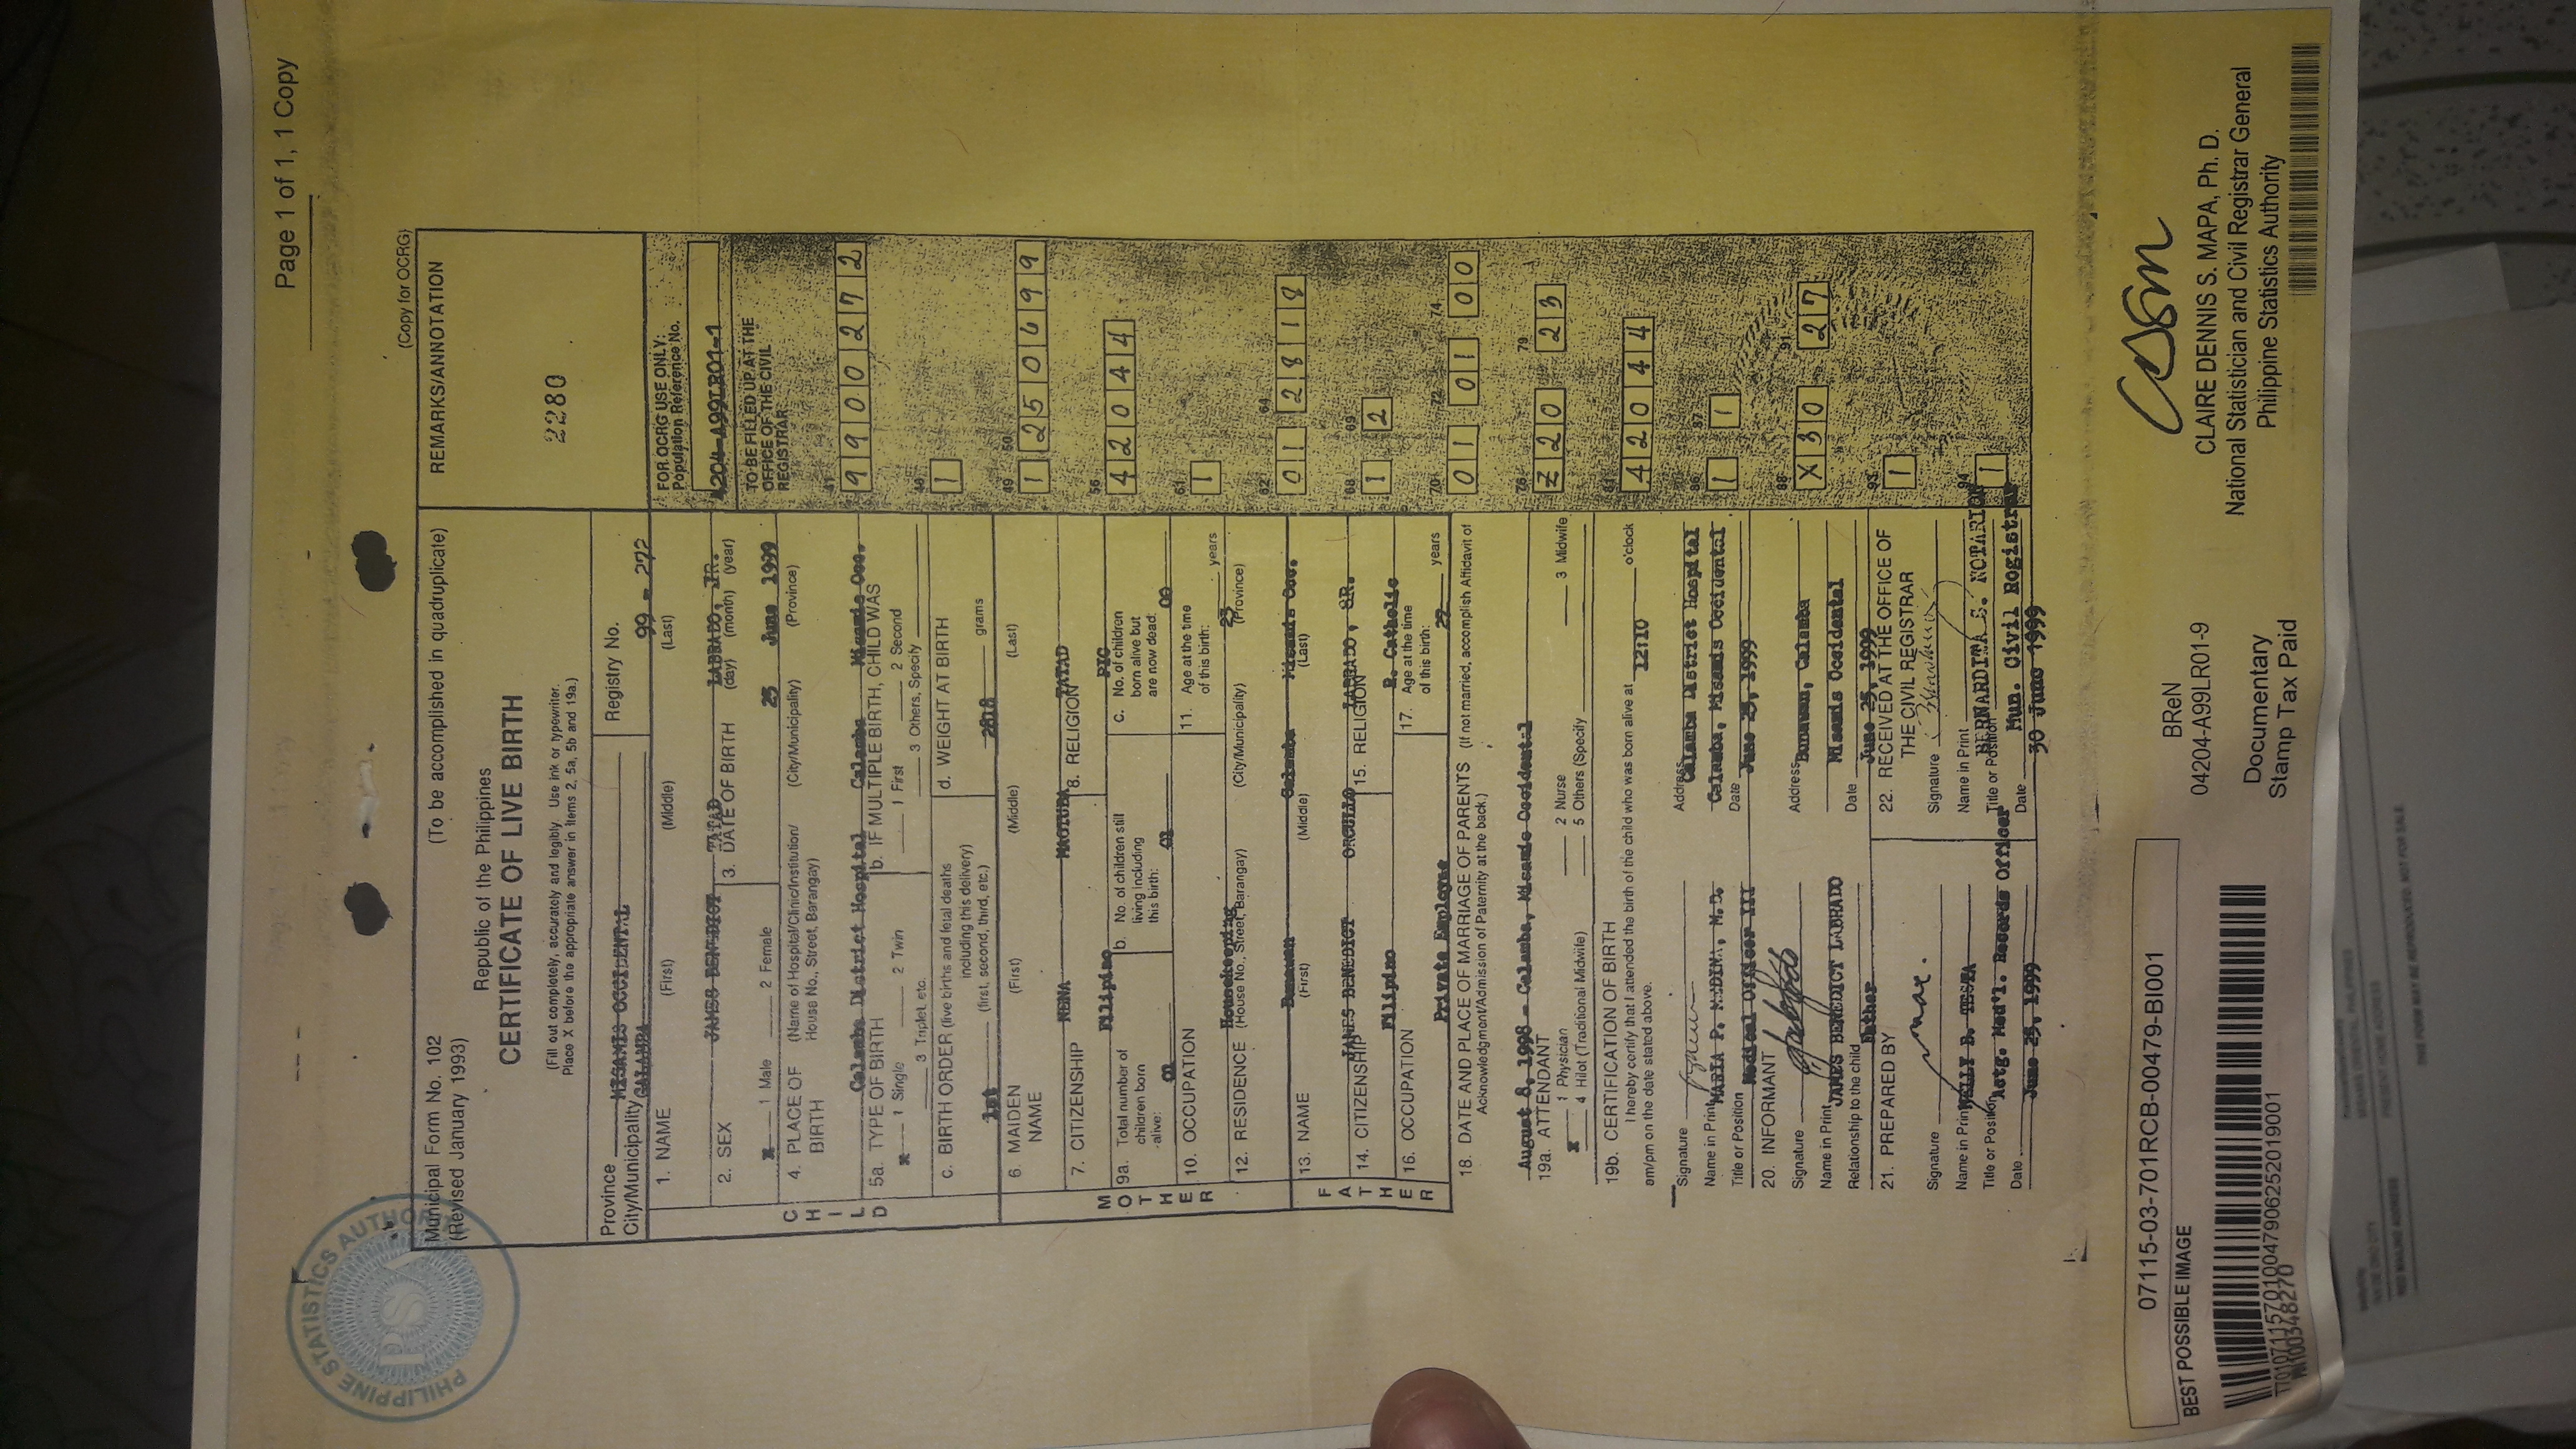 Page 1 of 1, 1 Copy
(Copy for OCRG)
Municipal Form No. 102
(Revised January 1993)
(To be accomplished in quadruplicate)
REMARKS/ANNOTATION
Republic of the Philippines
CERTIFICATE OF LIVE BIRTH
2280
(Fill out completely, accurately and legibly. Use ink or typewriter.
Place X before the appropriate answer in Items 2, 5a, 5b and 19a.)
Province MISAMIS OCCIDENTAL
City/Municipality CALAMBA
Registry No.
99 - 272
FOR OCRG USE ONLY:
Population Reference No.
4204-A99LR01-1
1. NAME (First) (Middle) (Last)
JAMES BENEDICT TATAD LABRADO, JR.
TO BE FILLED UP AT THE
OFFICE OF THE CIVIL
REGISTRAR
2. SEX
X 1 Male 2 Female
3. DATE OF BIRTH (day) (month) (year)
25 June 1999
4. PLACE OF BIRTH
(Name of Hospital/Clinic/Institution/
House No., Street, Barangay)
(City/Municipality) (Province)
Calamba District Hospital Calamba Misamis Occ.
41
9 9 0 0 2 7 2
CHILD
5a. TYPE OF BIRTH
X 1 Single 2 Twin
3 Triplet, etc.
b. IF MULTIPLE BIRTH, CHILD WAS
1 First 2 Second
3 Others, Specify
48
1
c. BIRTH ORDER (live births and fetal deaths
including this delivery)
1st (first, second, third, etc.)
d. WEIGHT AT BIRTH
grams
49 50
1 2 5 0 6 9 9
MOTHER
6. MAIDEN NAME
(First) (Middle) (Last)
NENA TATAD
7. CITIZENSHIP
Filipino
8. RELIGION
PIC
56
4 2 0 4 4
9a. Total number of
children born
alive:
01
b. No. of children still
living including
this birth:
c. No. of children
born alive but
are now dead:
00
61
1
10. OCCUPATION
Housekeeping
11. Age at the time
of this birth:
23 years
12. RESIDENCE (House No., Street, Barangay) (City/Municipality) (Province)
Bunawan Calamba Misamis Occ.
62 64
0 1 2 8 1 8
FATHER
13. NAME (First) (Middle) (Last)
JAMES BENEDICT ORCULLO LABRADO, SR.
14. CITIZENSHIP
Filipino
15. RELIGION
R. Catholic
68 69
1 2
16. OCCUPATION
Private Employee
17. Age at the time
of this birth:
27 years
70 72 74
0 1 0 1 0 0
18. DATE AND PLACE OF MARRIAGE OF PARENTS (If not married, accomplish Affidavit of
Acknowledgment/Admission of Paternity at the back.)
August 8, 1998 - Calamba, Misamis Occidental
76 79
Z 2 0 2 3
19a. ATTENDANT
X 1 Physician 2 Nurse 3 Midwife
4 Hilot (Traditional Midwife) 5 Others (Specify
19b. CERTIFICATION OF BIRTH
I hereby certify that I attended the birth of the child who was born alive at 12:10 o'clock
am/pm on the date stated above.
81
4 2 0 4 4
Signature
Name in Print MARIA P. MEDINA, M.D.
Title or Position Medical Officer III
Address Calamba District Hospital
Calamba, Misamis Occidental
Date June 25, 1999
86 87
1 1
20. INFORMANT
Signature
Name in Print JAMES BENEDICT LABRADO
Relationship to the child Father
Address Bunawan, Calamba
Misamis Occidental
Date June 25, 1999
88 91
X 3 0 2 7
21. PREPARED BY
Signature
Name in Print
Title or Position Actg. Med'l. Records Officer
Date June 25, 1999
22. RECEIVED AT THE OFFICE OF
THE CIVIL REGISTRAR
Signature
Name in Print BERNARDITA S.
Title or Position Mun. Civil Registrar
Date 30 June 1999
93
1
94
1
PHILIPPINE STATISTICS AUTHORITY
PSA
07115-03-701RCB-00479-BI001
BEST POSSIBLE IMAGE
BReN
04204-A99LR01-9
Documentary
Stamp Tax Paid
CLAIRE DENNIS S. MAPA, Ph. D.
National Statistician and Civil Registrar General
Philippine Statistics Authority